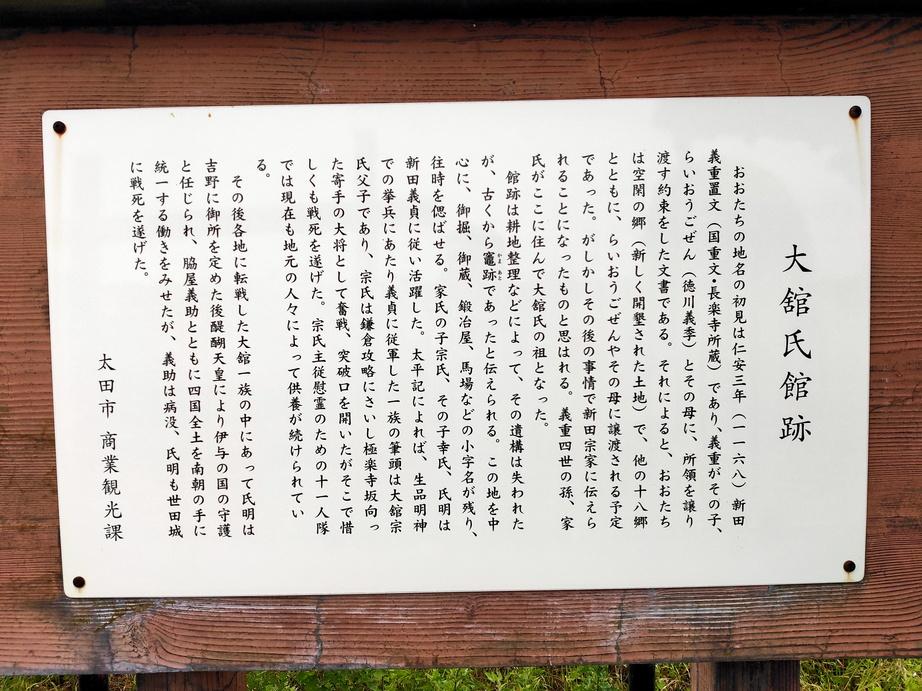 大舘氏館跡
おおたちの地名の初見は仁安三年（一一六八）新田
義重置文（国重文・長楽寺所蔵）であり、義重がその子、
らいおうごぜん（徳川義季）とその母に、所領を譲り
渡す約束をした文書である。それによると、おおたち
は空閑の郷（新しく開墾された土地）で、他の十八郷
とともに、らいおうごぜんやその母に譲渡される予定
であった。がしかしその後の事情で新田宗家に伝えら
れることになったものと思はれる。義重四世の孫、家
氏がここに住んで大舘氏の祖となった。
館跡は耕地整理などによって、その遺構は失われた
が、古くから竈跡であったと伝えられる。この地を中
かま あと
心に、御掘、御蔵、鍛冶屋、馬場などの小字名が残り、
往時を偲ばせる。家氏の子宗氏、その子幸氏、氏明は
新田義貞に従い活躍した。太平記によれば、生品明神
での挙兵にあたり義貞に従軍した一族の筆頭は大舘宗
氏父子であり、宗氏は鎌倉攻略にさいし極楽寺坂向っ
た寄手の大将として奮戦、突破口を開いたがそこで惜
しくも戦死を遂げた。宗氏主従慰霊のための十一人隊
では現在も地元の人々によって供養が続けられてい
る。
その後各地に転戦した大舘一族の中にあって氏明は
吉野に御所を定めた後醍醐天皇により伊与の国の守護
と任じられ、脇屋義助とともに四国全土を南朝の手に
統一する働きをみせたが、義助は病没、氏明も世田城
に戦死を遂げた。
太田市 商業観光課